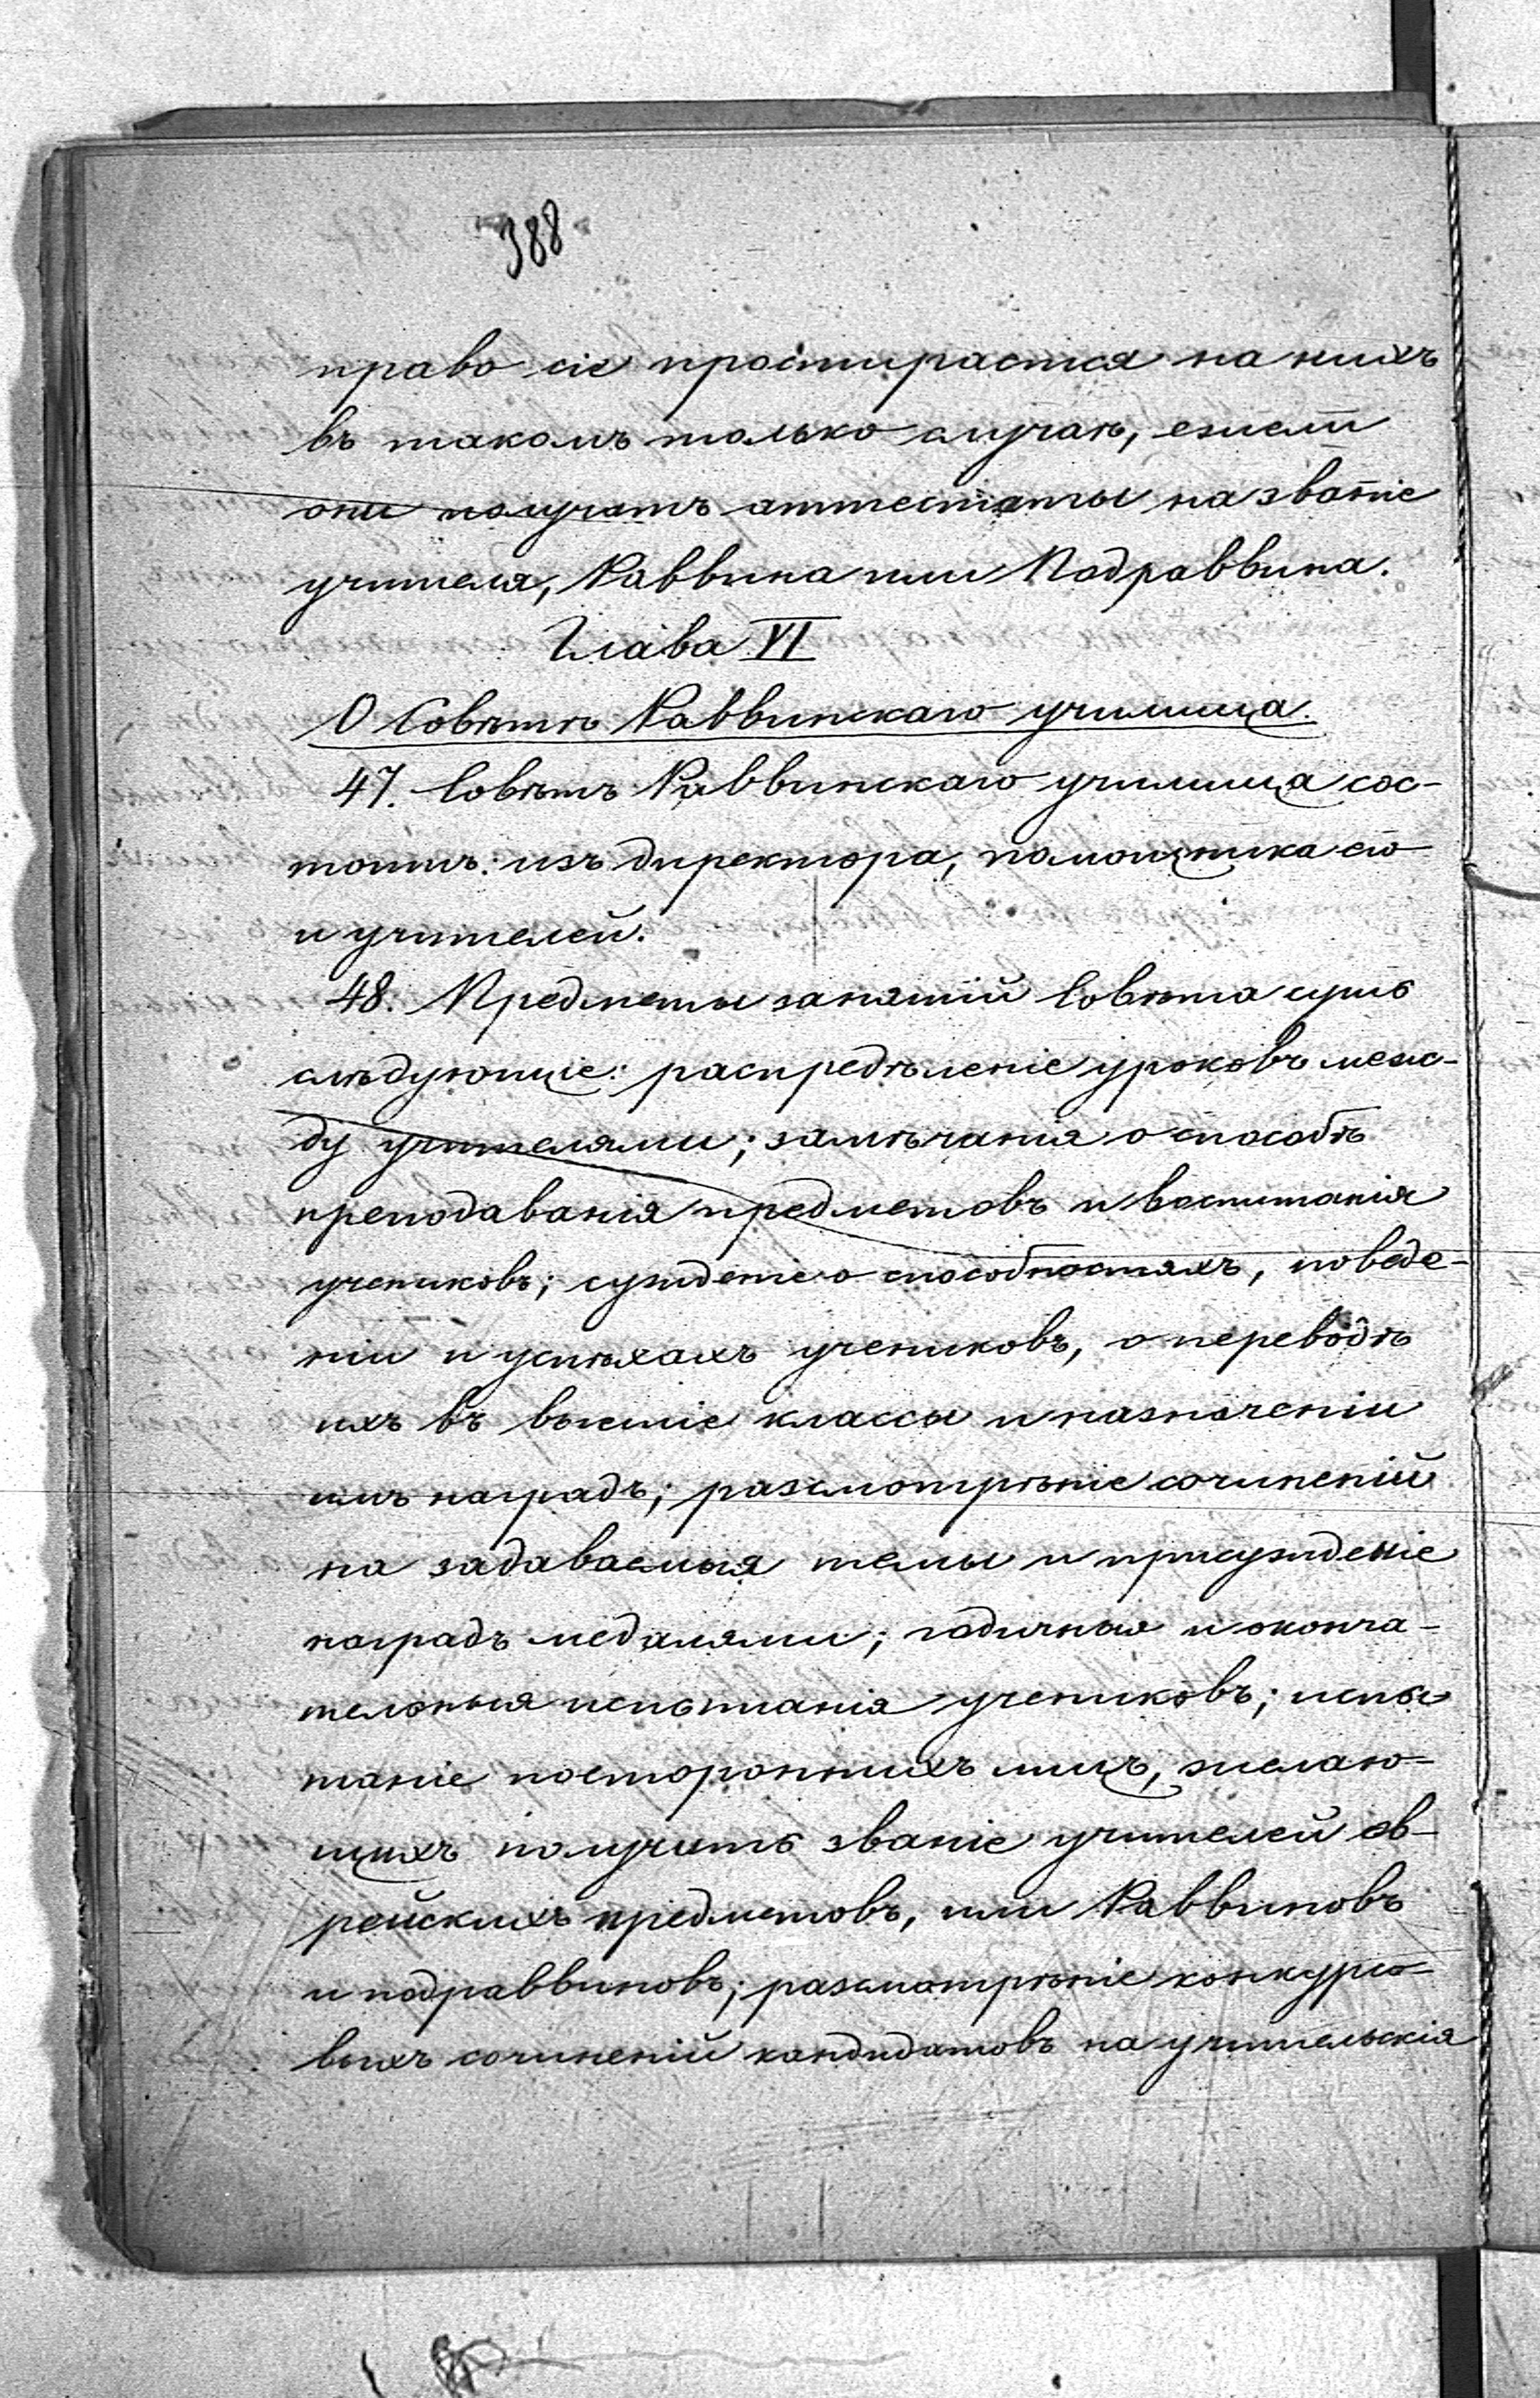 388
право сіе простирается на нихъ
въ такомъ только случаѣ, ежели
они получатъ аттестаты на званіе
учителя, Раввина или Подраввина.
Глава VI
О Совѣтѣ Раввинскаго училища.
47. Совѣтъ Раввинскаго училища сос-
тоитъ: изъ директора, помощника его
и учителей.
48. Предметы занятій Совѣта суть
слѣдующіе: распредѣленіе уроковъ меж-
ду учителями; замѣчанія о способѣ
преподаванія предметовъ и воспитанія
учениковъ; сужденіе о способностяхъ, поведе-
ніи и успѣхахъ учениковъ, о переводѣ
ихъ въ высшіе классы и назначеніи
имъ наградъ; разсмотрѣніе сочиненій
на задаваемыя темы и присужденіе
наградъ медалями; годичныя и оконча-
тельныя испытанія учениковъ; испы-
таніе постороннихъ лицъ, желаю-
щихъ получить званіе учителей ев-
рейскихъ предметовъ, или Раввиновъ
и подраввиновъ; разсмотрѣніе конкурсо-
выхъ сочиненій кандидатовъ на учительскія